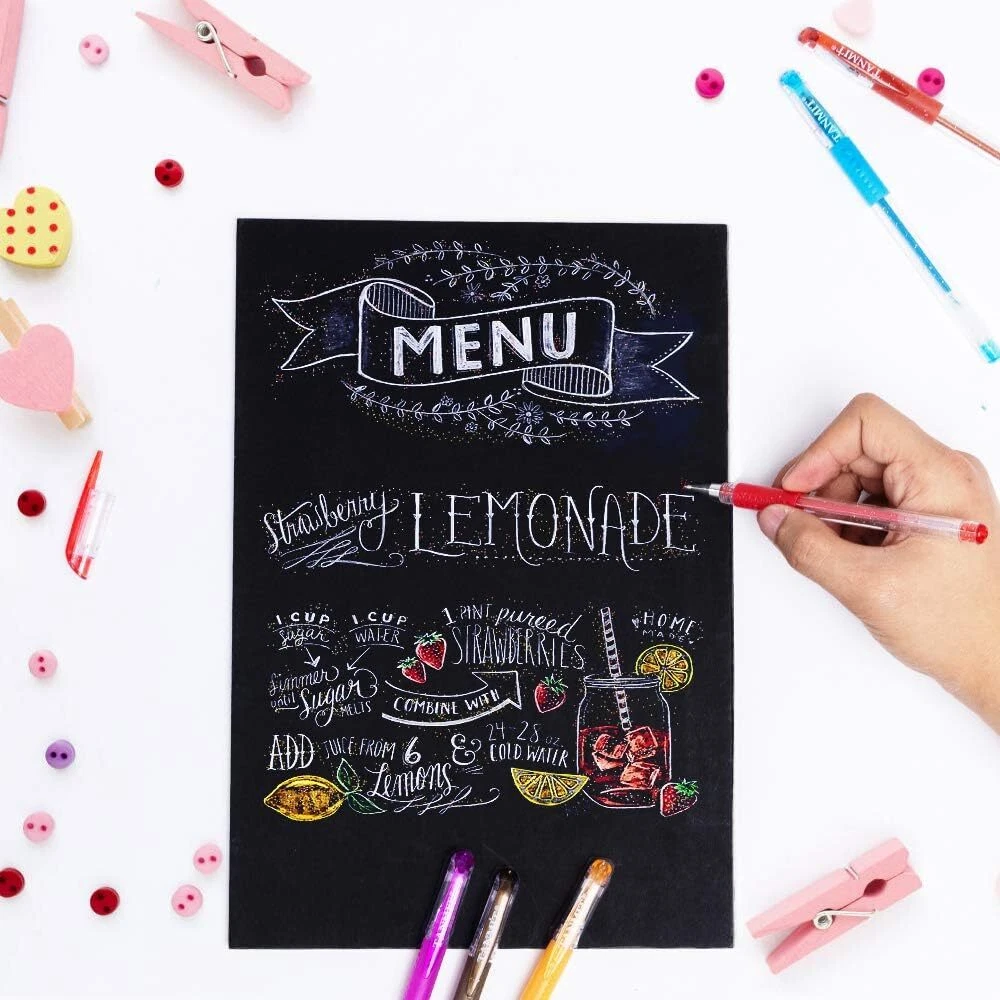 MENU
Strawberry LEMONADE
1 CUP Sugar
1 CUP WATER
1 PINT pureed STRAWBERRIES
HOME MADE
Simmer until Sugar MELTS
COMBINE WITH
ADD JUICE FROM 6 Lemons
& 24-28 oz COLD WATER
TANMIT
TANMIT
TANMIT